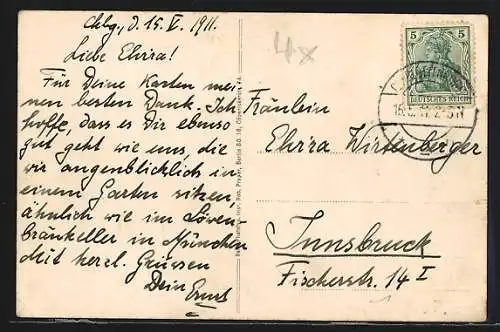 Chbg., d. 15. V. 1911.
Liebe Elvira!
Für Deine Karten mei-
nen besten Dank. Ich
hoffe, dass es Dir ebenso
gut geht wie uns, die
wir augenblicklich in
einem Garten sitzen,
ähnlich wie im Löwen-
bräukeller in München
Mit herzl. Grüssen
Dein Ernst
4x
5 5
DEUTSCHES REICH
Fräulein
Elvira Wirtenberger
Innsbruck
Fischerstr. 14 I